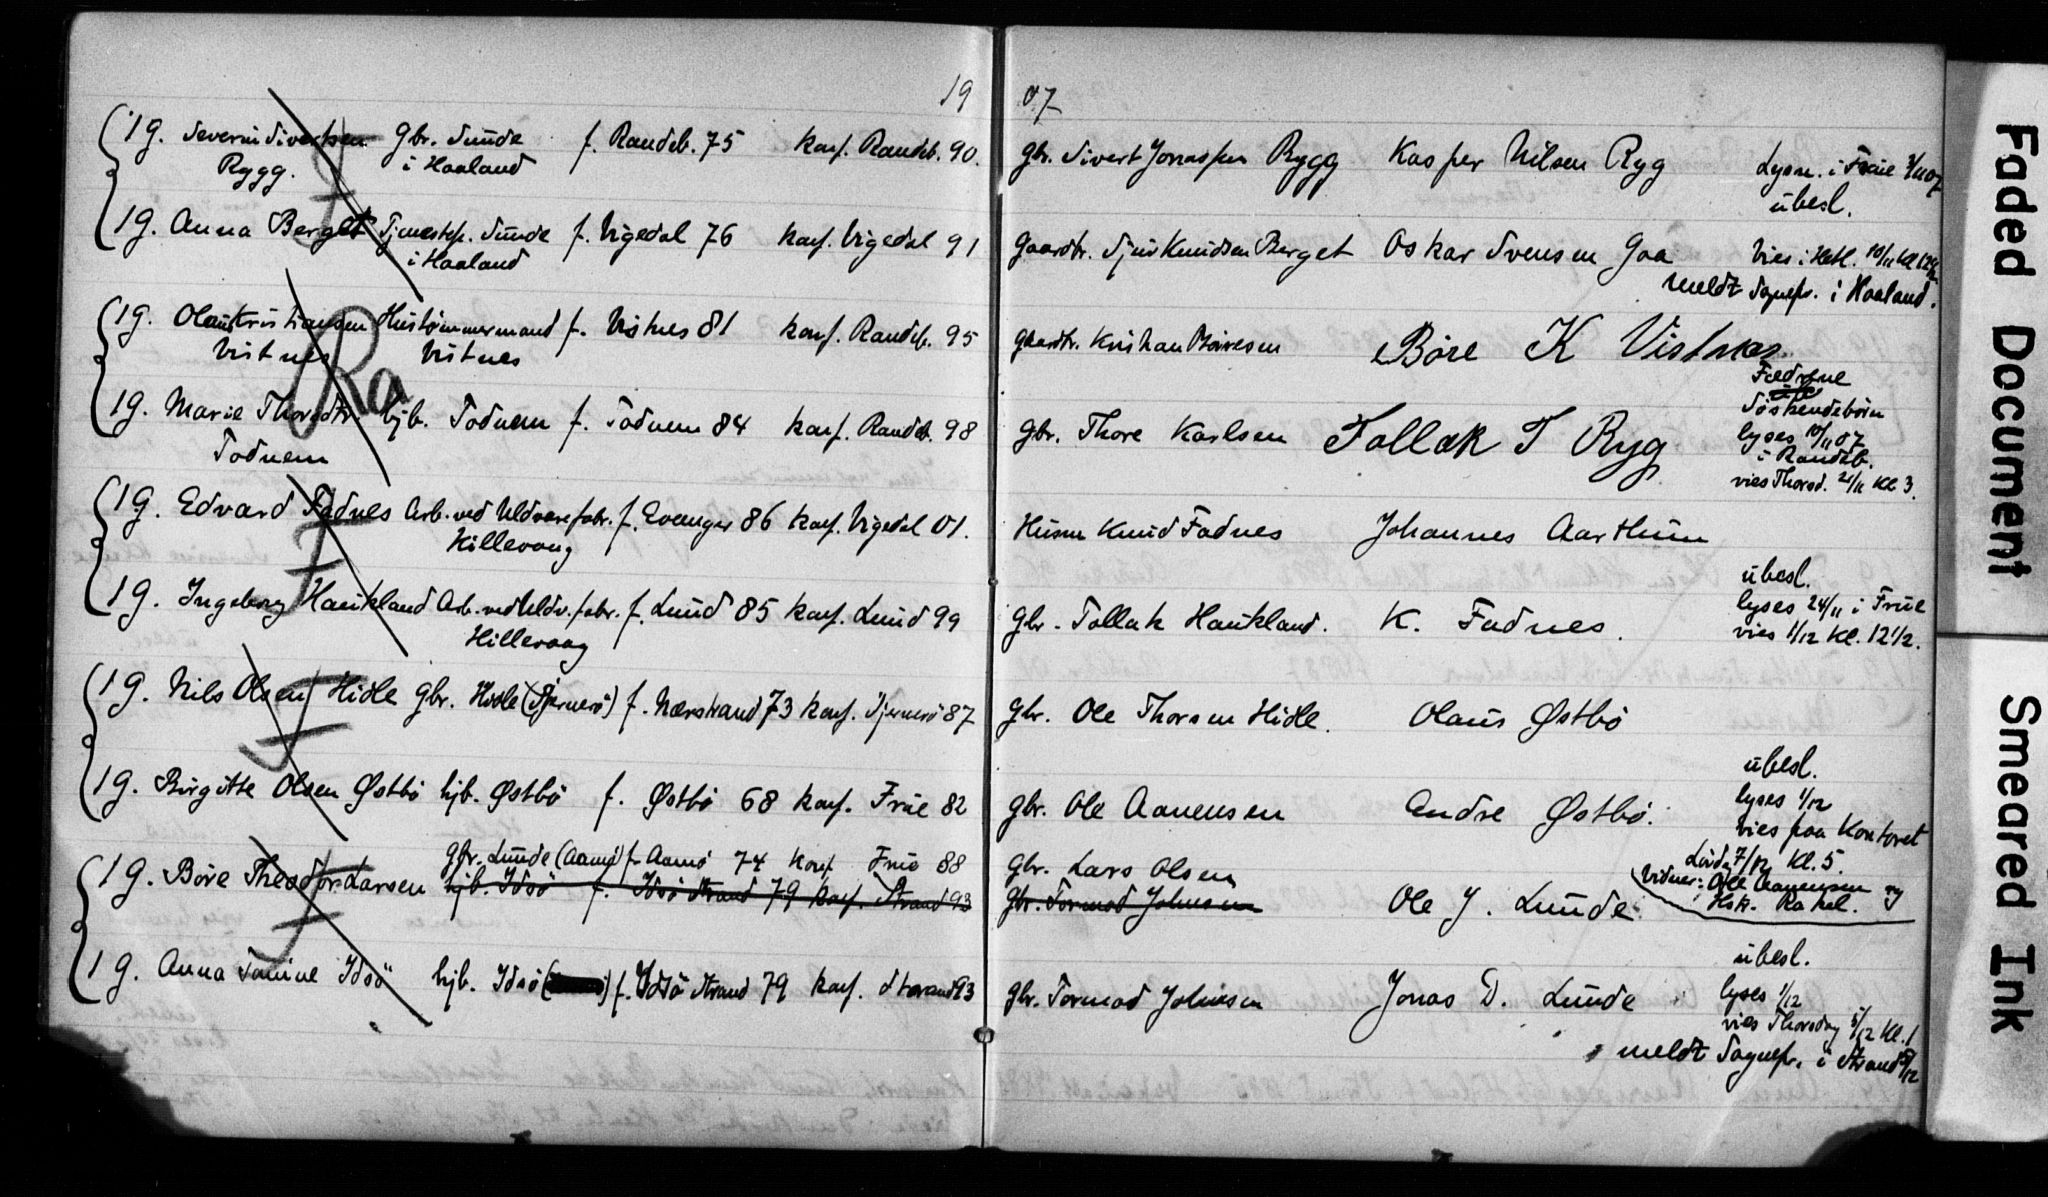 19 07
1 g. Severin Sivertsen gbr. Sunde f. Randeb. 75 konf. Randeb. 90. gbr. Sivert Jonassen Rygg Kasper Nilsen Ryg Lysn. i Frue 3/11 07
Rygg. i Haaland
ubesl.
1 g. Anna Berget Tjenestep. Sunde f. Vigedal 76 konf. Vigedal 91 gaardbr. Sjur Knudsen Berget Oskar Svensen Goa Vies i Hetl. 10/11 Kl 12 1/2
i Haaland
meldt Sognepr. i Haaland.
1 g. Olaus Kristiansen Hustømmermand f. Vistnes 81 konf. Randeb. 95 gaardbr. Kristian Børresen Børe K Vistnes
Vistnes Vistnes
Ra
Fædrene
Søskendebörn
1 g. Marie Thorsdtr. hjb. Todnem f. Todnem 84 konf. Randeb. 98 gbr. Thore Karlsen Tollak T Ryg lyses 10/11 07
Todnem
i Randeb.
vies Thorsd. 21/11 Kl 3.
1 g. Edvard Fadnes Arb. ved Uldvarefabr. f. Evanger 86 konf. Vigedal 01. Husm Knud Fadnes Johannes Aarthun
Hillevaag
ubesl.
1 g. Ingeborg Haukland Arb. ved Uldv. fabr. f. Lund 85 konf. Lund 99 gbr. Tollak Haukland. K. Fadnes. lyses 24/11 i Frue
Hillevaag
vies 1/12 Kl. 12 1/2.
1 g. Nils Olsen Hidle gbr. Hidle (Sjernerö) f. Nærstrand 73 konf. Sjernerö 87 gbr. Ole Thorsen Hidle. Olaus Østbö
ubesl.
1 g. Birgitte Olsen Østbö hjb. Østbö f. Østbö 68 konf. Frue 82 gbr. Ole Aanensen Andre Østbö. lyses 1/12
vies paa Kontoret
Lörda 7/12 Kl. 5.
gbr. Lunde (Aamö) f. Aamö 74 konf Frue 88 gbr. Lars Olsen
Vidner: Ole Aanensen og
1 g. Böre Theodor Larsen hjb. Idsö f. Idsö Strand 79 konf. Strand 93 gbr. Tormod Johnsen Ole J. Lunde Hstr. Rakel.
ubesl.
1 g. Anna Tomine Idsö hjb. Idsö f. Idsö Strand 79 konf. Strand 93 gbr. Tormod Johnsen Jonas D. Lunde lyses 1/12
vies Thorsdag 5/12 Kl. 1
meldt Sognepr. i Strand 5/12
Faded Document
Smeared Ink